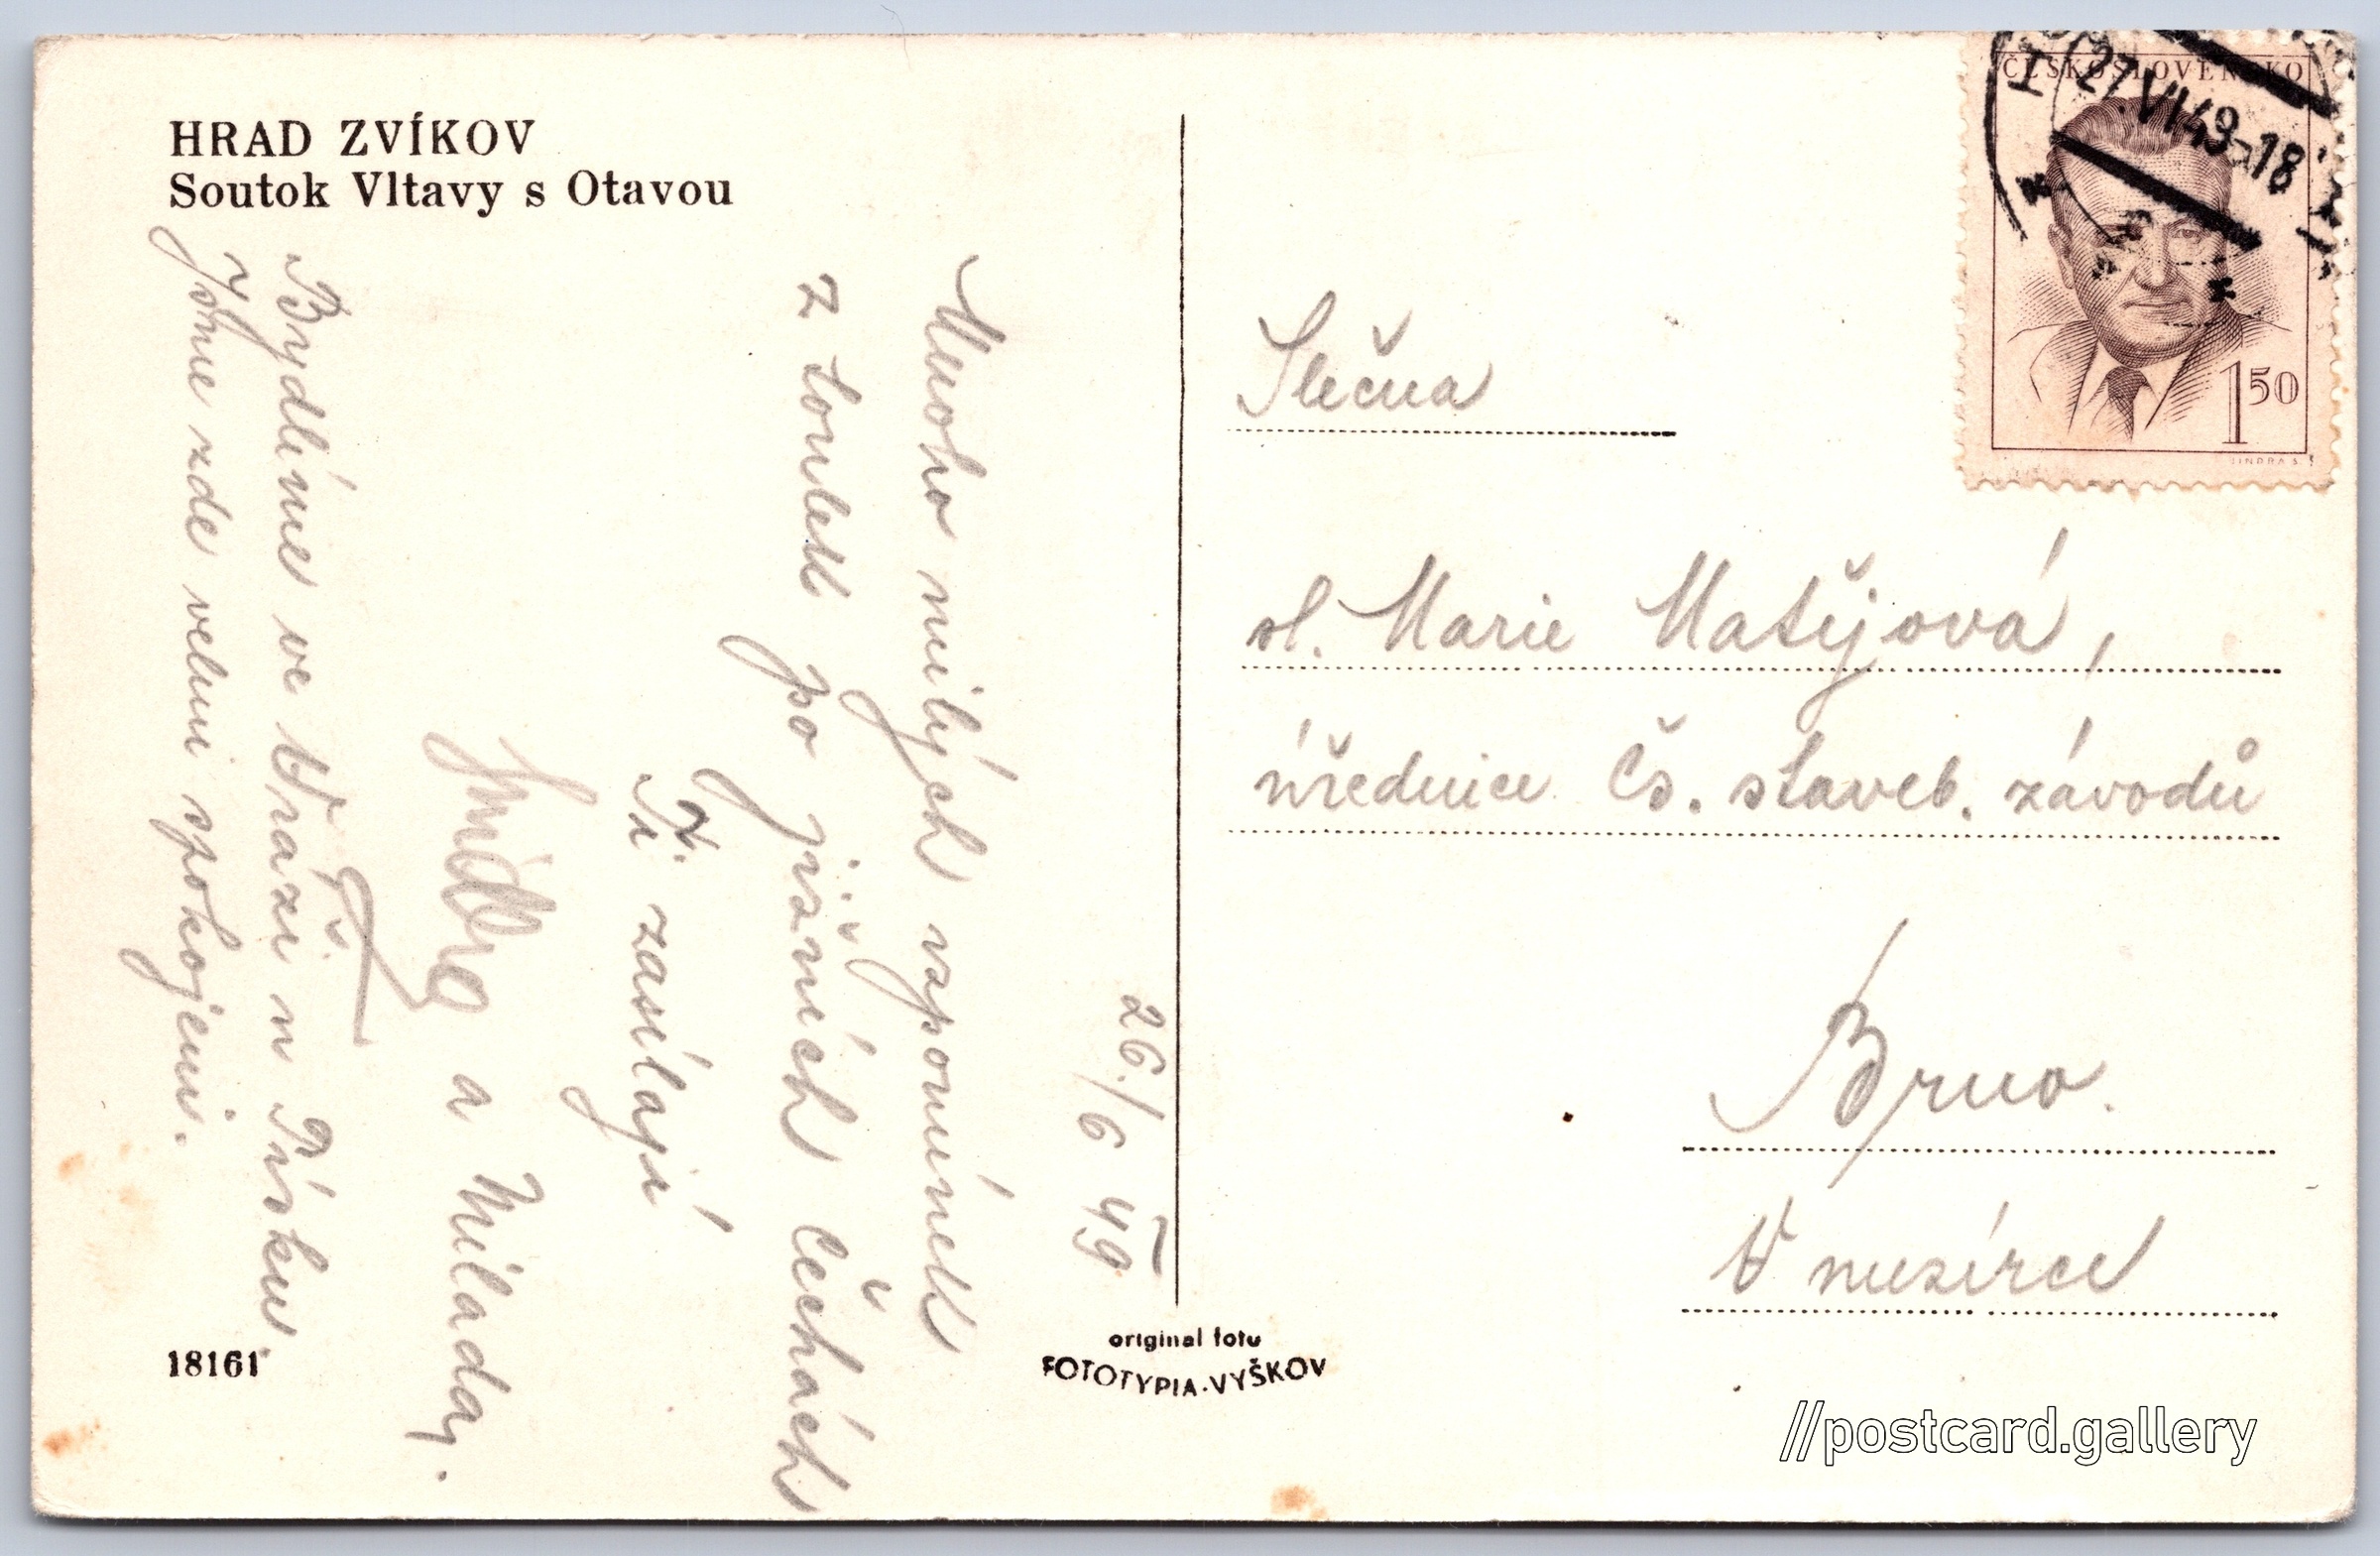 HRAD ZVÍKOV
Soutok Vltavy s Otavou
26./6 49
Mnoho milých vzpomínek
z toulek po jižních Čechách
Ti zasílají
Jindra a Milada.
Bydlíme ve Vrázi u Písku.
Jsme zde velmi spokojeni.
18161
original foto
FOTOTYPIA-VYŠKOV
ČESKOSLOVENSKO
27.VI.49-18
1 50
JINDRA S.
Slečna
sl. Marie Matějová,
úřednice Čs. staveb. závodů
Brno.
V
//postcard.gallery